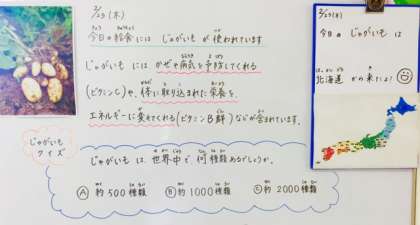 2/29(木)
今日の給食には じゃがいも が 使われています
じゃがいも には かぜや病気を予防してくれる
(ビタミンC)や、体に取り込まれた栄養を
エネルギーに変えてくれる(ビタミンB群)などが含まれています。
じゃがいも
クイズ
じゃがいも は 世界中で 何種類あるでしょうか。
Ⓐ 約500種類 Ⓑ 約1000種類 Ⓒ 約2000種類
2/29(木)
今日の じゃがいも は
北海道 から来たよ!